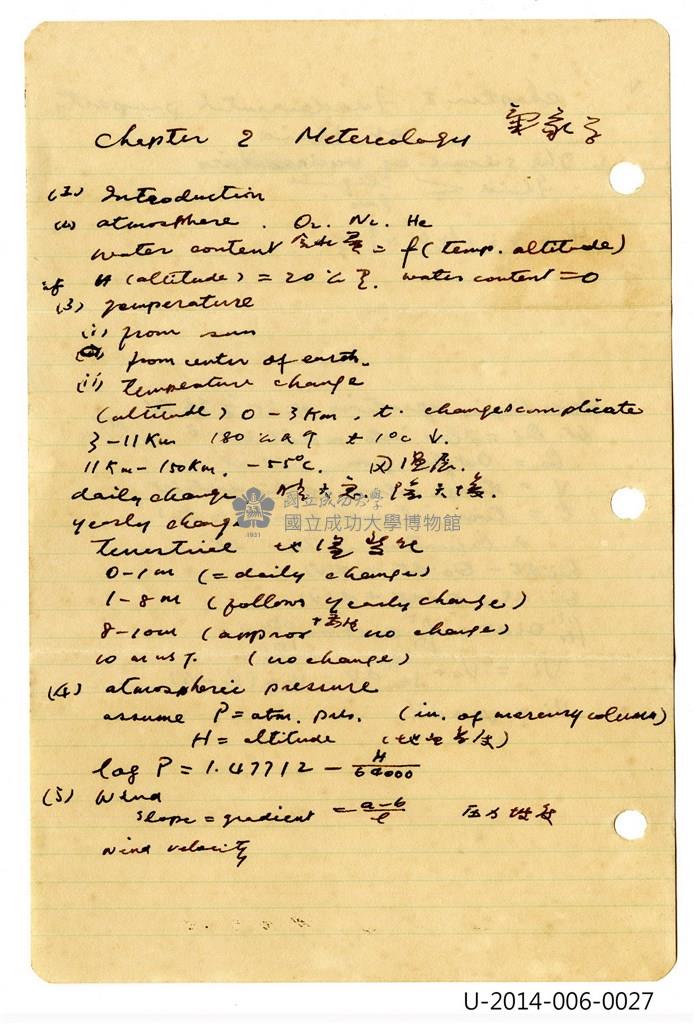 Chapter 2 Metereology 氣象学
(I) Introduction
(2) atmosphere. O2. N2. He
water content 含水量 = f(temp. altitude)
if H (altitude) = 20 water content = 0
(3) Temperature
(i) from sun
from center of earth.
(ii) temperature change
(altitude) 0 - 3Km, t. change complicate
3-11Km 180 1°C ↓.
11Km-150Km. -55°C.
daily change
國立成功大學
國立成功大學博物館
1931
yearly change
Terrestrial 地
0-1m (= daily change)
1-8m (follows yearly change)
8-10m (approx no change)
10 m (no change)
(4) atmospheric pressure
assume P = atm. pres. (in. of mercury column)
H = altitude
log P = 1.47712 - H/64000
(5) Wind
slope = gradient = a-b/l
wind velocity
U-2014-006-0027